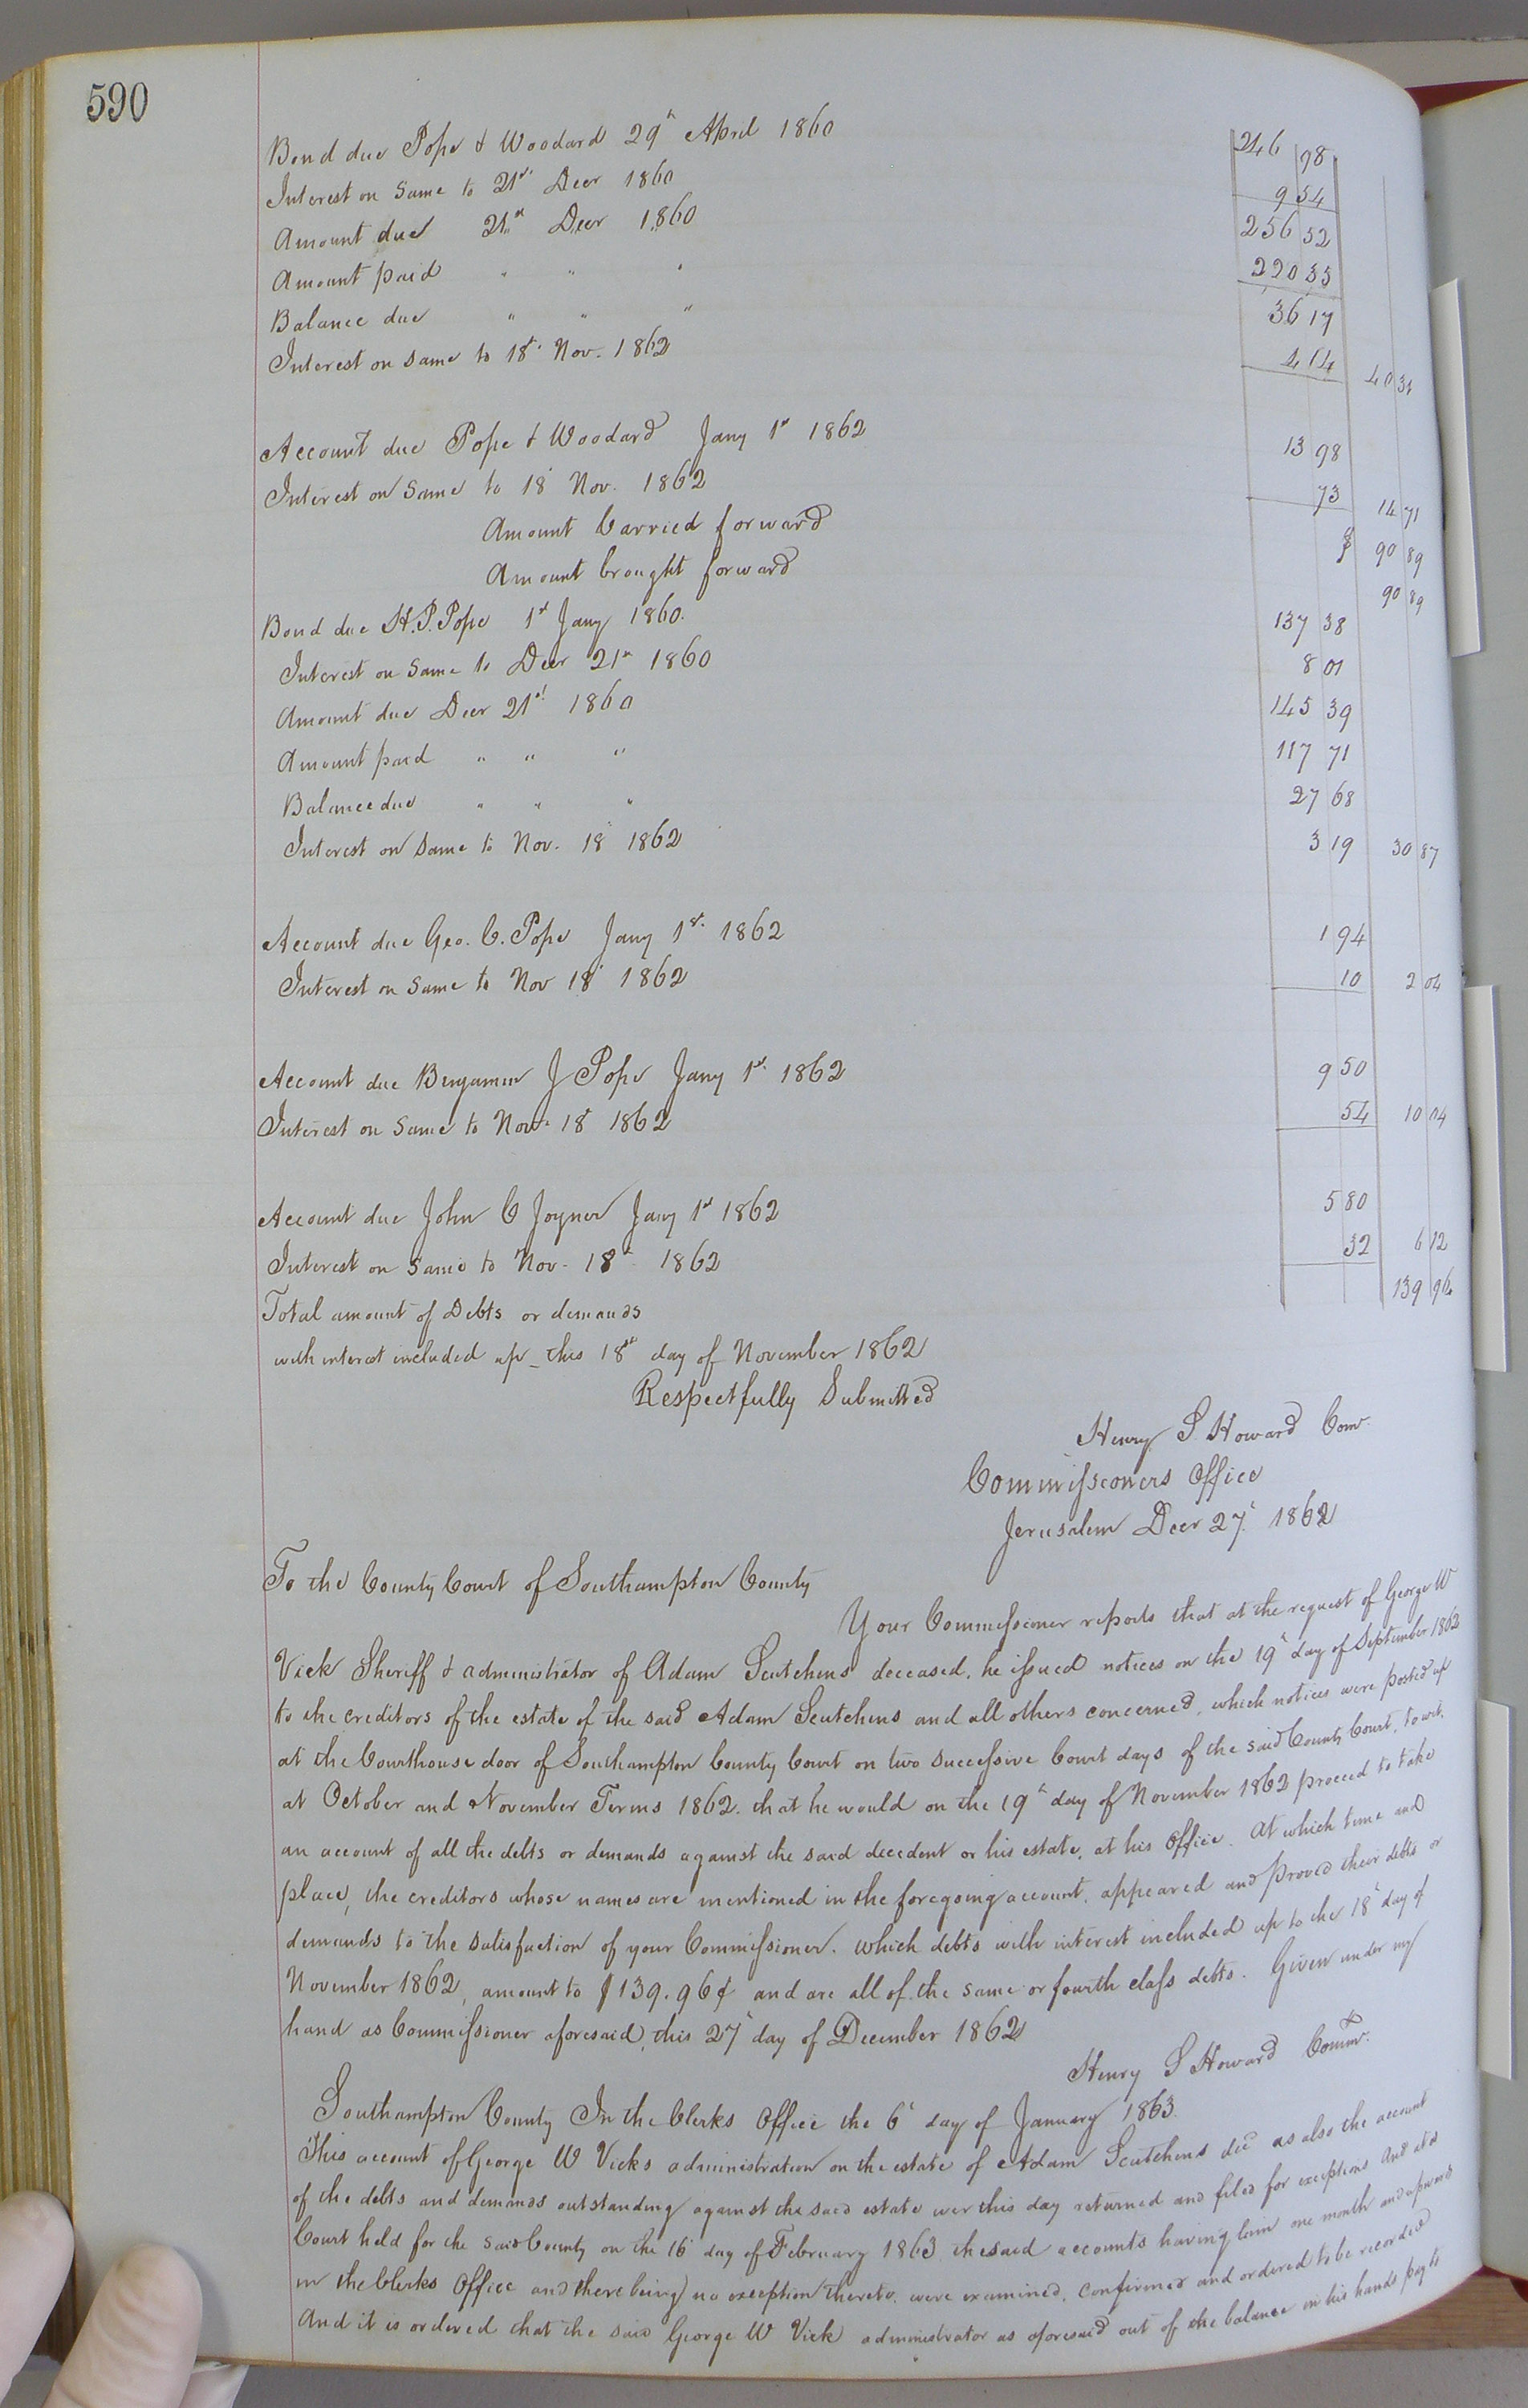 590
Bond due Pope & Woodard 29th April 1860 246 98
Interest on Same to 21st Decr 1860 9 54
Amount due 21st Decr 1860 256 52
Amount paid " " " 220 35
Balance due " " " 36 17
Interest on same to 18th Nov. 1862 4 14 40 31
Account due Pope & Woodard Jany 1st 1862 13 98
Interest on Same to 18th Nov. 1862 73 14 71
Amount Carried forward $ 90 89
Amount brought forward 90 89
Bond due H. P. Pope 1st Jany 1860. 137 38
Interest on Same to Decr 21st 1860 8 01
Amount due Decr 21st 1860 145 39
Amount paid " " " 117 71
Balance due " " " 27 68
Interest on Same to Nov. 18th 1862 3 19 30 87
Account due Geo. C. Pope Jany 1st 1862 1 94
Interest on Same to Nov 18th 1862 10 2 04
Account due Benjamin J Pope Jany 1st 1862 9 50
Interest on Same to Nov. 18th 1862 54 10 04
Account due John C Joyner Jany 1st 1862 5 80
Interest on Same to Nov. 18th 1862 32 6 12
Total amount of Debts or demands 139 96
with interest included up this 18th day of November 1862
Respectfully Submitted
Henry S. Howard Comr.
Commissioners Office
Jerusalem Decr 27th 1862
To the County Court of Southampton County
Your Commissioner reports that at the request of George W
Vick Sheriff & administrator of Adam Scutchens deceased, he issued notices on the 19th day of September 1862
to the creditors of the estate of the said Adam Scutchens and all others concerned, which notices were posted up
at the Courthouse door of Southampton County Court on two successive Court days of the said County Court, to wit,
at October and November Terms 1862. that he would on the 19th day of November 1862 proceed to take
an account of all the debts or demands against the said decedent or his estate, at his Office. At which time and
place, the creditors whose names are mentioned in the foregoing account, appeared and proved their debts or
demands to the satisfaction of your Commissioner. which debts with interest included up to the 18th day of
November 1862, amount to $139.96¢ and are all of the same or fourth class debts. Given under my
hand as Commissioner aforesaid, this 27th day of December 1862
Henry S Howard Commr.
Southampton County In the Clerks Office the 6th day of January 1863.
This account of George W Vicks administration on the estate of Adam Scutchens decd as also the account
of the debts and demands outstanding against the said estate wer this day returned and filed for exceptions And at a
Court held for the said County on the 16th day of February 1863 the said accounts having lain one month and upwards
in the Clerks Office and there being no exception thereto, were examined, confirmed and ordered to be recorded
And it is ordered that the said George W Vick administrator as aforesaid out of the balance in his hands pay to